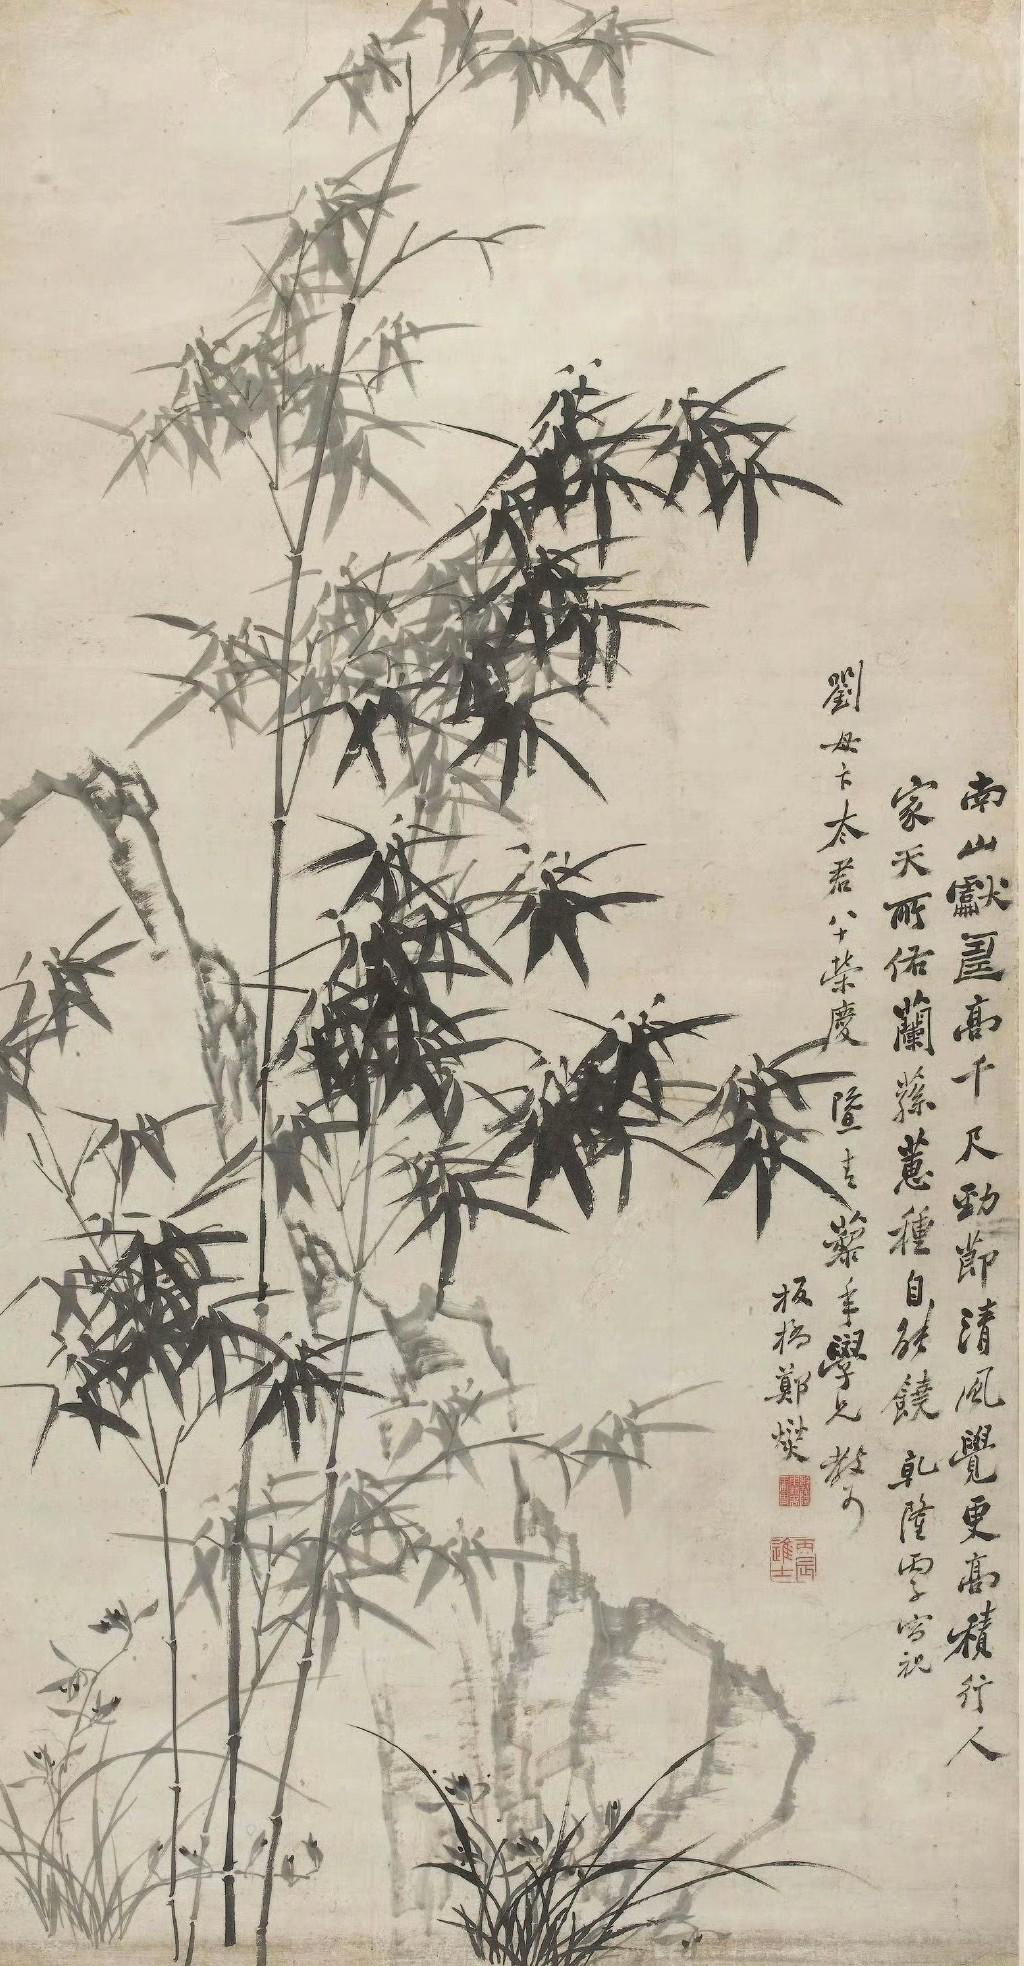 南山獻壽高千尺勁節清風覺更高積行人
家天所佑蘭蓀蕙種自能饒 乾隆 寫祝
劉母卞太君八十榮慶 暨 青藜年學兄教
板橋鄭燮
丙辰進士